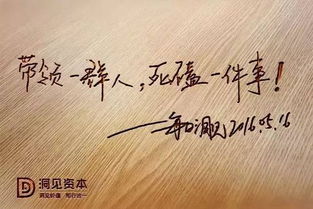 带领一群人，死磕一件事！
——每日洞见2016.05.16
洞见资本
洞见价值 知行合一